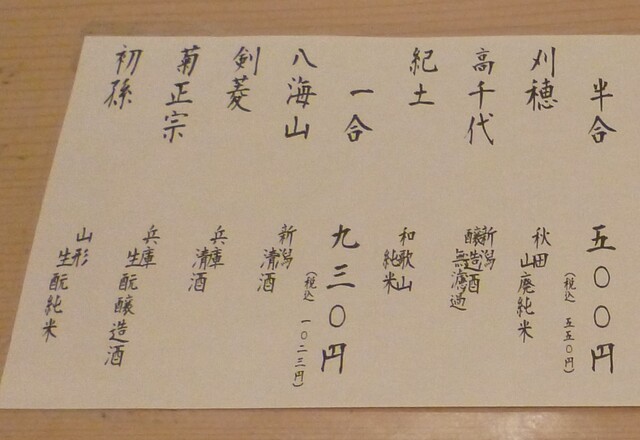 半合 五〇〇円
(税込 五五〇円)
刈穂 秋田 山廃純米
高千代 新潟 醸造酒 無濾過
紀土 和歌山 純米
一合 九三〇円
(税込 一〇二三円)
八海山 新潟 清酒
剣菱 兵庫 清酒
菊正宗 兵庫 生酛醸造酒
初孫 山形 生酛純米